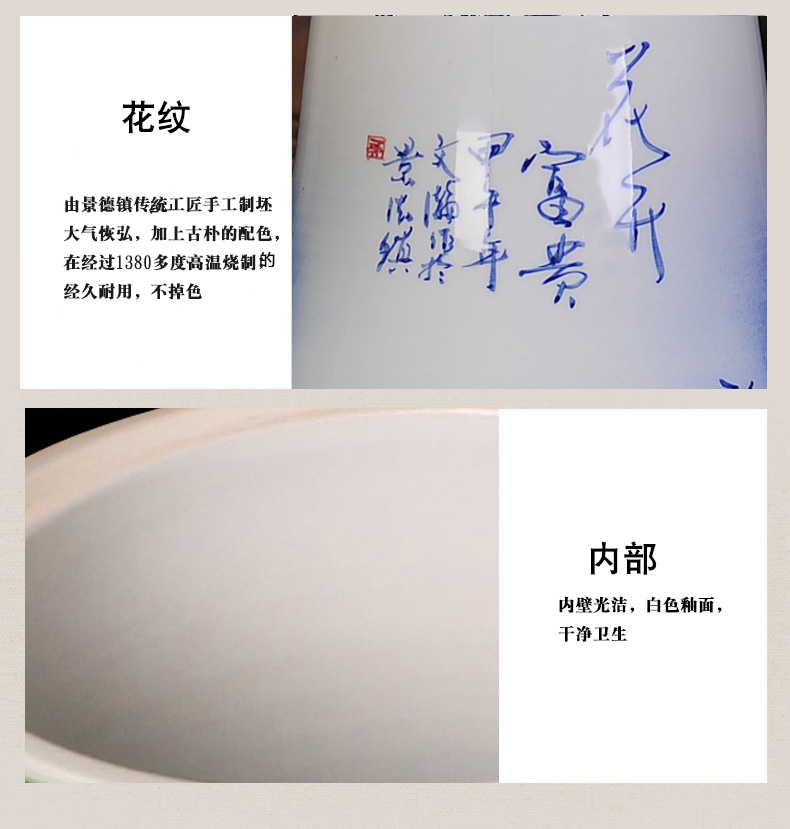 花纹
由景德镇传統工匠手工制坯
大气恢弘，加上古朴的配色，
在经过1380多度高温烧制的
经久耐用，不掉色
花开
富贵
甲午年
文瀚作於
景德鎮
内部
内壁光洁，白色釉面，
干净卫生